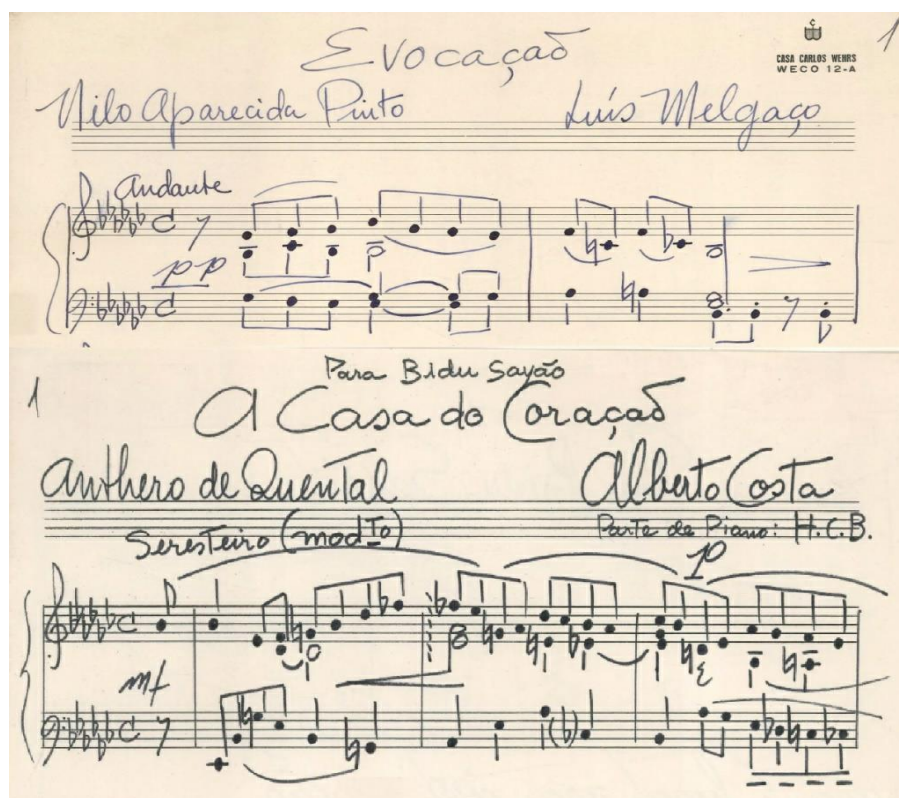 Evocação
CASA CARLOS WEHRS
WECO 12-A
1
Nilo Aparecida Pinto Luís Melgaço
Andante
pp
Para Bidu Sayão
1
A Casa do Coração
Anthero de Quental Alberto Costa
Seresteiro (modto) Parte de Piano: H.C.B.
p
mf